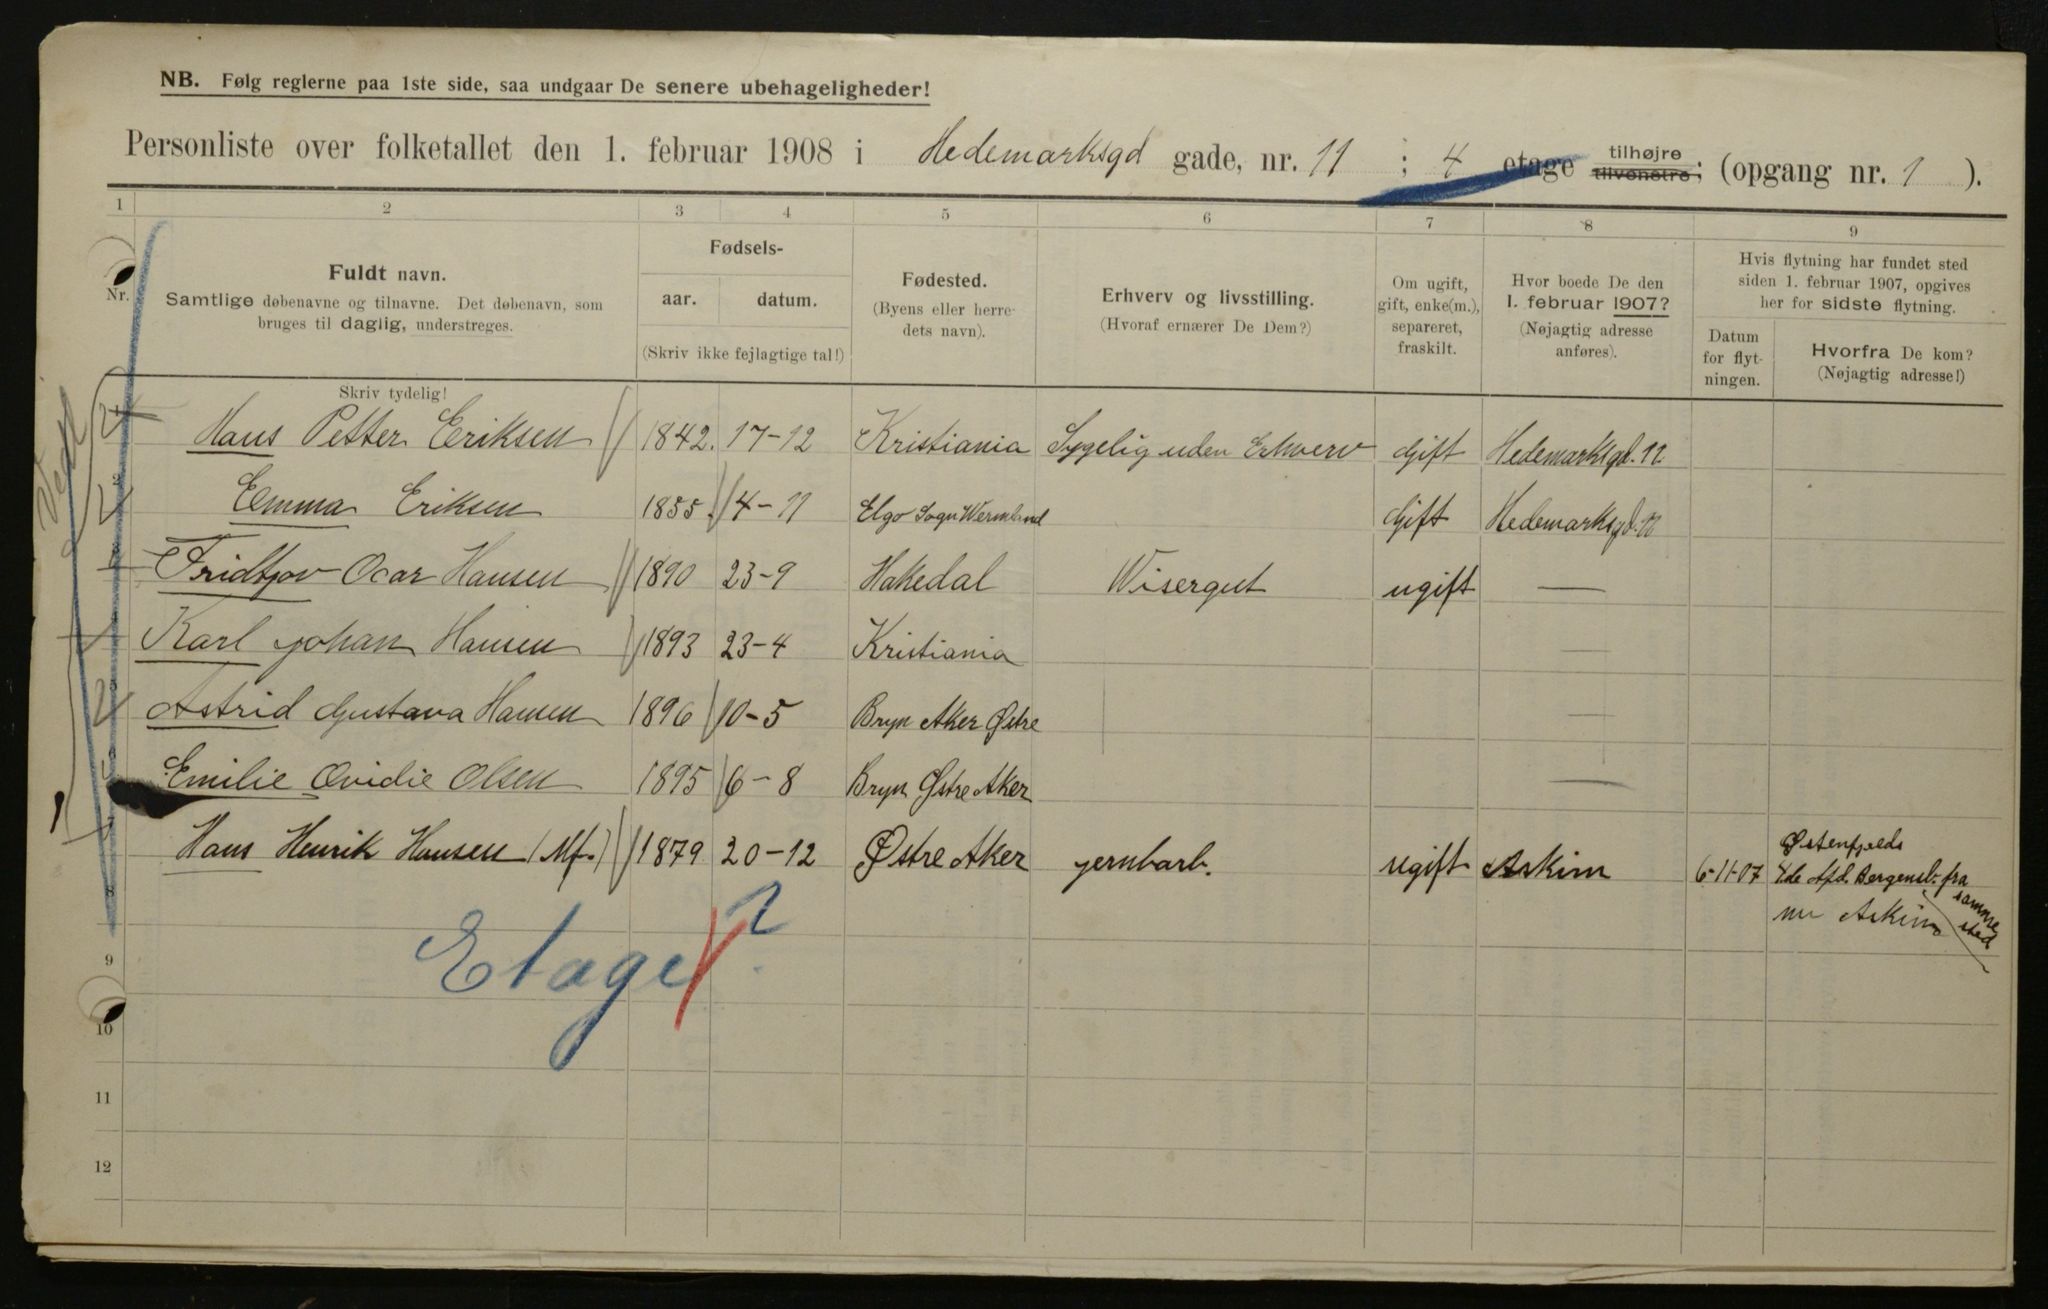 NB. Følg reglerne paa 1ste side, saa undgaar De senere ubehageligheder!
Personliste over folketallet den 1. februar 1908 i Hedemarksgd gade, nr. 11 ; 4 etage tilhøjre tilvenstre; (opgang nr. 1 ).
1 2 3 4 5 6 7 8 9
Nr.
Fuldt navn.
Samtlige døbenavne og tilnavne. Det døbenavn, som
bruges til daglig, understreges.
Skriv tydelig!
Fødsels-
aar. datum.
(Skriv ikke fejlagtige tal!)
Fødested.
(Byens eller herre-
dets navn).
Erhverv og livsstilling.
(Hvoraf ernærer De Dem?)
Om ugift,
gift, enke(m.),
separeret,
fraskilt.
Hvor boede De den
1. februar 1907?
(Nøjagtig adresse
anføres).
Hvis flytning har fundet sted
siden 1. februar 1907, opgives
her for sidste flytning.
Datum
for flyt-
ningen.
Hvorfra De kom?
(Nøjagtig adresse!)
Hans Petter Eriksen 1842. 17-12 Kristiania Sygelig uden Erhverv Gift Hedemarksgd. 11
Emma Eriksen 1855. 4-11 Elgo Sogn Wermland Gift Hedemarksgd. 11
Fridtjov Ocar Hansen 1890 23-9 Hakedal Wisergut ugift —
Karl Johan Hansen 1893 23-4 Kristiania —
Astrid Gustava Hansen 1896 10-5 Bryn Aker Østre —
6 Emilie Ovidie Olsen 1895 6-8 Bryn Østre Aker —
7 Hans Henrik Hansen (Mf.) 1879 20-12 Østre Aker jernbarb. ugift Askim 6-11-07 Østenfjelds
4de Afd. Bergensb. fra
samme
sted
nu Askim
8
Etage?
9
10
11
12